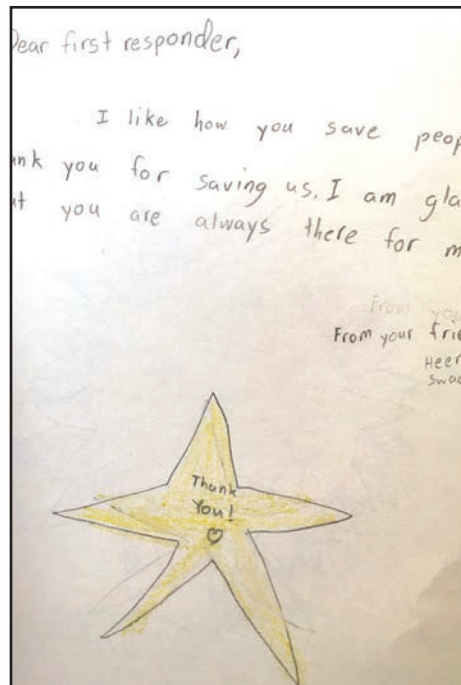 Dear first responder,
I like how you save peop
ank you for saving us. I am gla
at you are always there for m
From you
From your frie
Heer
Swad
Thank
You!